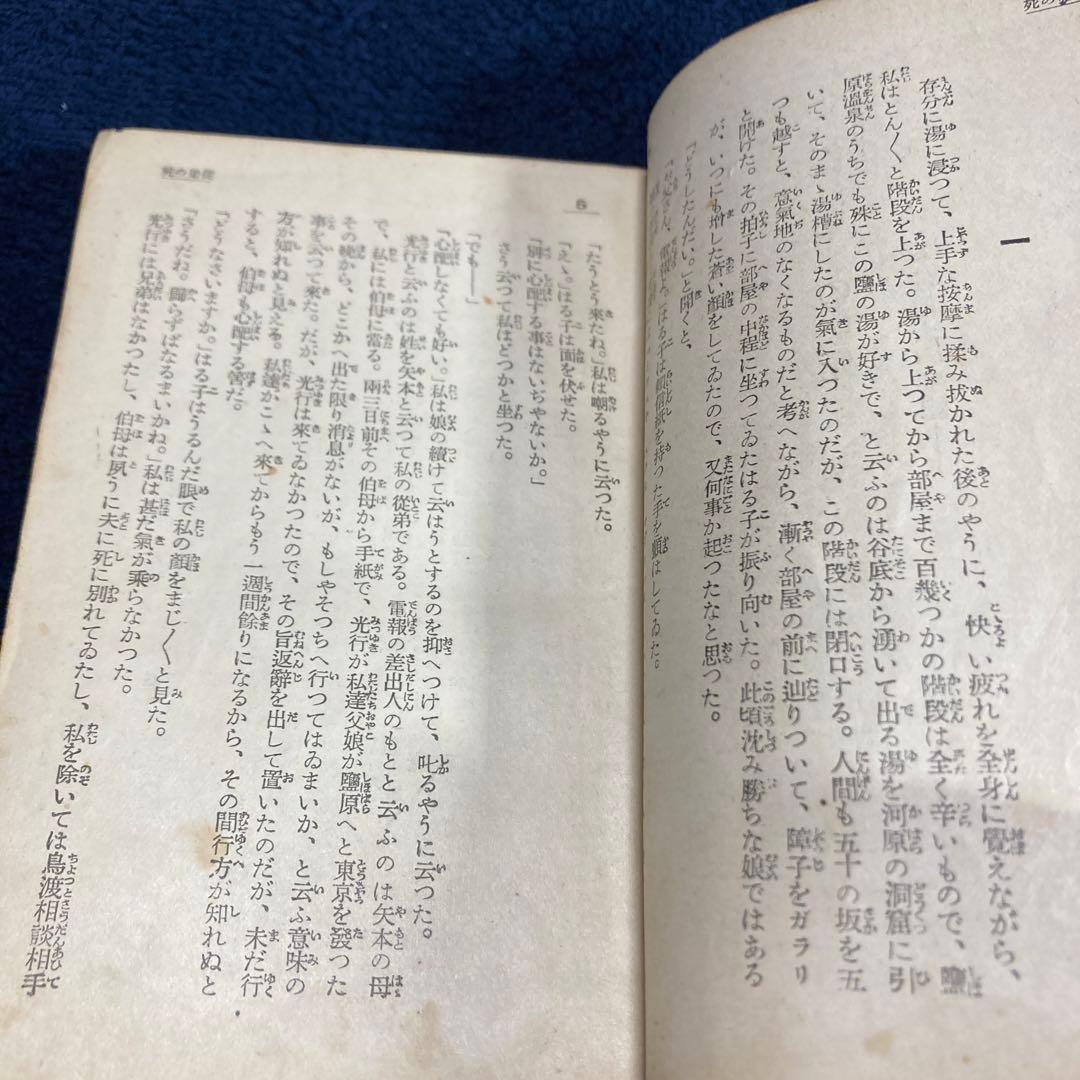 一
存分に湯に浸つて、上手な按摩に揉み拔かれた後のやうに、快い疲れを全身に覺えながら、
私はとん〱と階段を上つた。湯から上つてから部屋まで百幾つかの階段は全く辛いもので、鹽
原溫泉のうちでも殊にこの鹽の湯が好きで、と云ふのは谷底から湧いて出る湯を河原の洞窟に引
いて、そのまゝ湯槽にしたのが氣に入つたのだが、この階段には閉口する。人間も五十の坂を五
つも越すと、意氣地のなくなるものだと考へながら、漸く部屋の前に辿りついて、障子をガラリ
と開けた。その拍子に部屋の中程に坐つてゐたはる子が振り向いた。此頃沈み勝ちな娘ではある
が、いつにも增した蒼い顏をしてゐたので、又何事か起つたなと思つた。
「どうしたんだい。」と聞くと、
電報。」はる子は頼信紙を持つた手を顫はしてゐた。
死の
「たうとう來たね。」私は嘲るやうに云つた。
「えゝ。」はる子は面を伏せた。
「別に心配する事はないぢやないか。」
さう云つて私はどつかと坐つた。
「でも――」
「心配しなくても好い。」私は娘の續けて云はうとするのを抑へつけて、叱るやうに云つた。
光行と云ふのは姓を矢本と云つて私の從弟である。電報の差出人のもとと云ふのは矢本の母
で、私には伯母に當る。兩三日前その伯母から手紙で、光行が私達父娘が鹽原へと東京を發つた
その晩から、どこかへ出た限り消息がないが、もしやそつちへ行つてはゐまいか、と云ふ意味の
事を云つて來た。だが、光行は來てゐなかつたので、その旨返辭を出して置いたのだが、未だ行
方が知れぬと見える。私達がこゝへ來てからもう一週間餘りになるから、その間行方が知れぬと
すると、伯母も心配する筈だ。
「どうなさいますか。」はる子はうるんだ眼で私の顏をまじ〱と見た。
「さうだね。歸らずばなるまいかね。」私は甚だ氣が乘らなかつた。
光行には兄弟はなかつたし、伯母は夙うに夫に死に別れてゐたし、私を除いては鳥渡相談相手